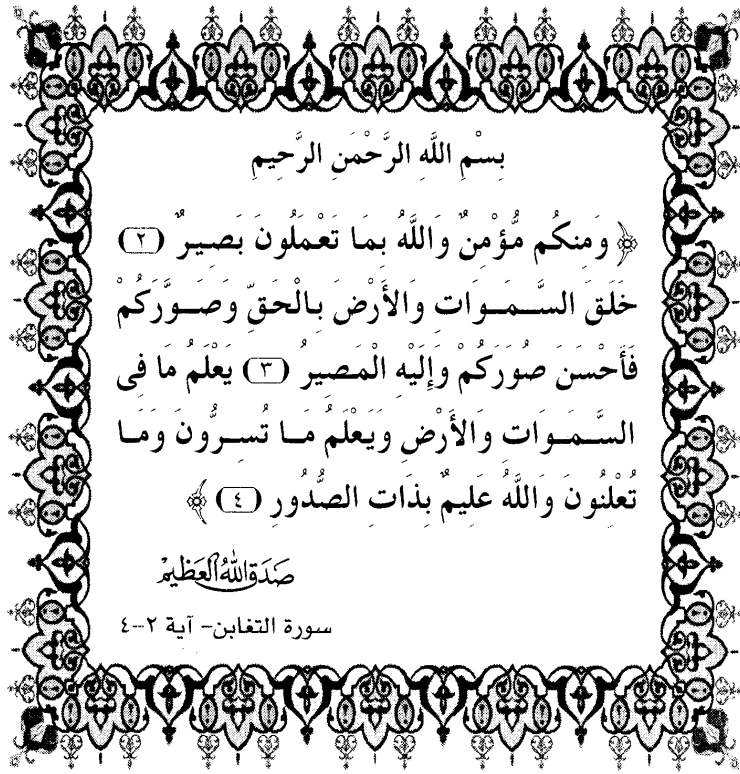 بِسْمِ اللَّهِ الرَّحْمَنِ الرَّحِيمِ
﴿ وَمِنكُم مُّؤْمِنٌ وَاللَّهُ بِمَا تَعْمَلُونَ بَصِيرٌ (٢)
خَلَقَ السَّمَوَاتِ وَالأَرْضَ بِالْحَقِّ وَصَوَّرَكُمْ
فَأَحْسَنَ صُوَرَكُمْ وَإِلَيْهِ الْمَصِيرُ (٣) يَعْلَمُ مَا فِى
السَّمَوَاتِ وَالأَرْضِ وَيَعْلَمُ مَا تُسِرُّونَ وَمَا
تُعْلِنُونَ وَاللَّهُ عَلِيمٌ بِذَاتِ الصُّدُورِ (٤) ﴾
صَدَقَ اللهُ العَظِيمْ
سورة التغابن- آية ٢-٤